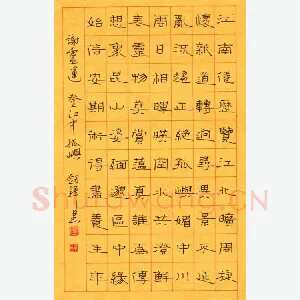 江南倦歷覽江北曠周旋
懷新道轉迥尋異景不延
亂流趨正絕孤嶼媚中川
雲日相暉映空水共澄鮮
表靈物莫賞蘊真誰為傳
想象昆山姿緬邈區中緣
始信安期術得盡養生年
謝靈運 登江中孤嶼